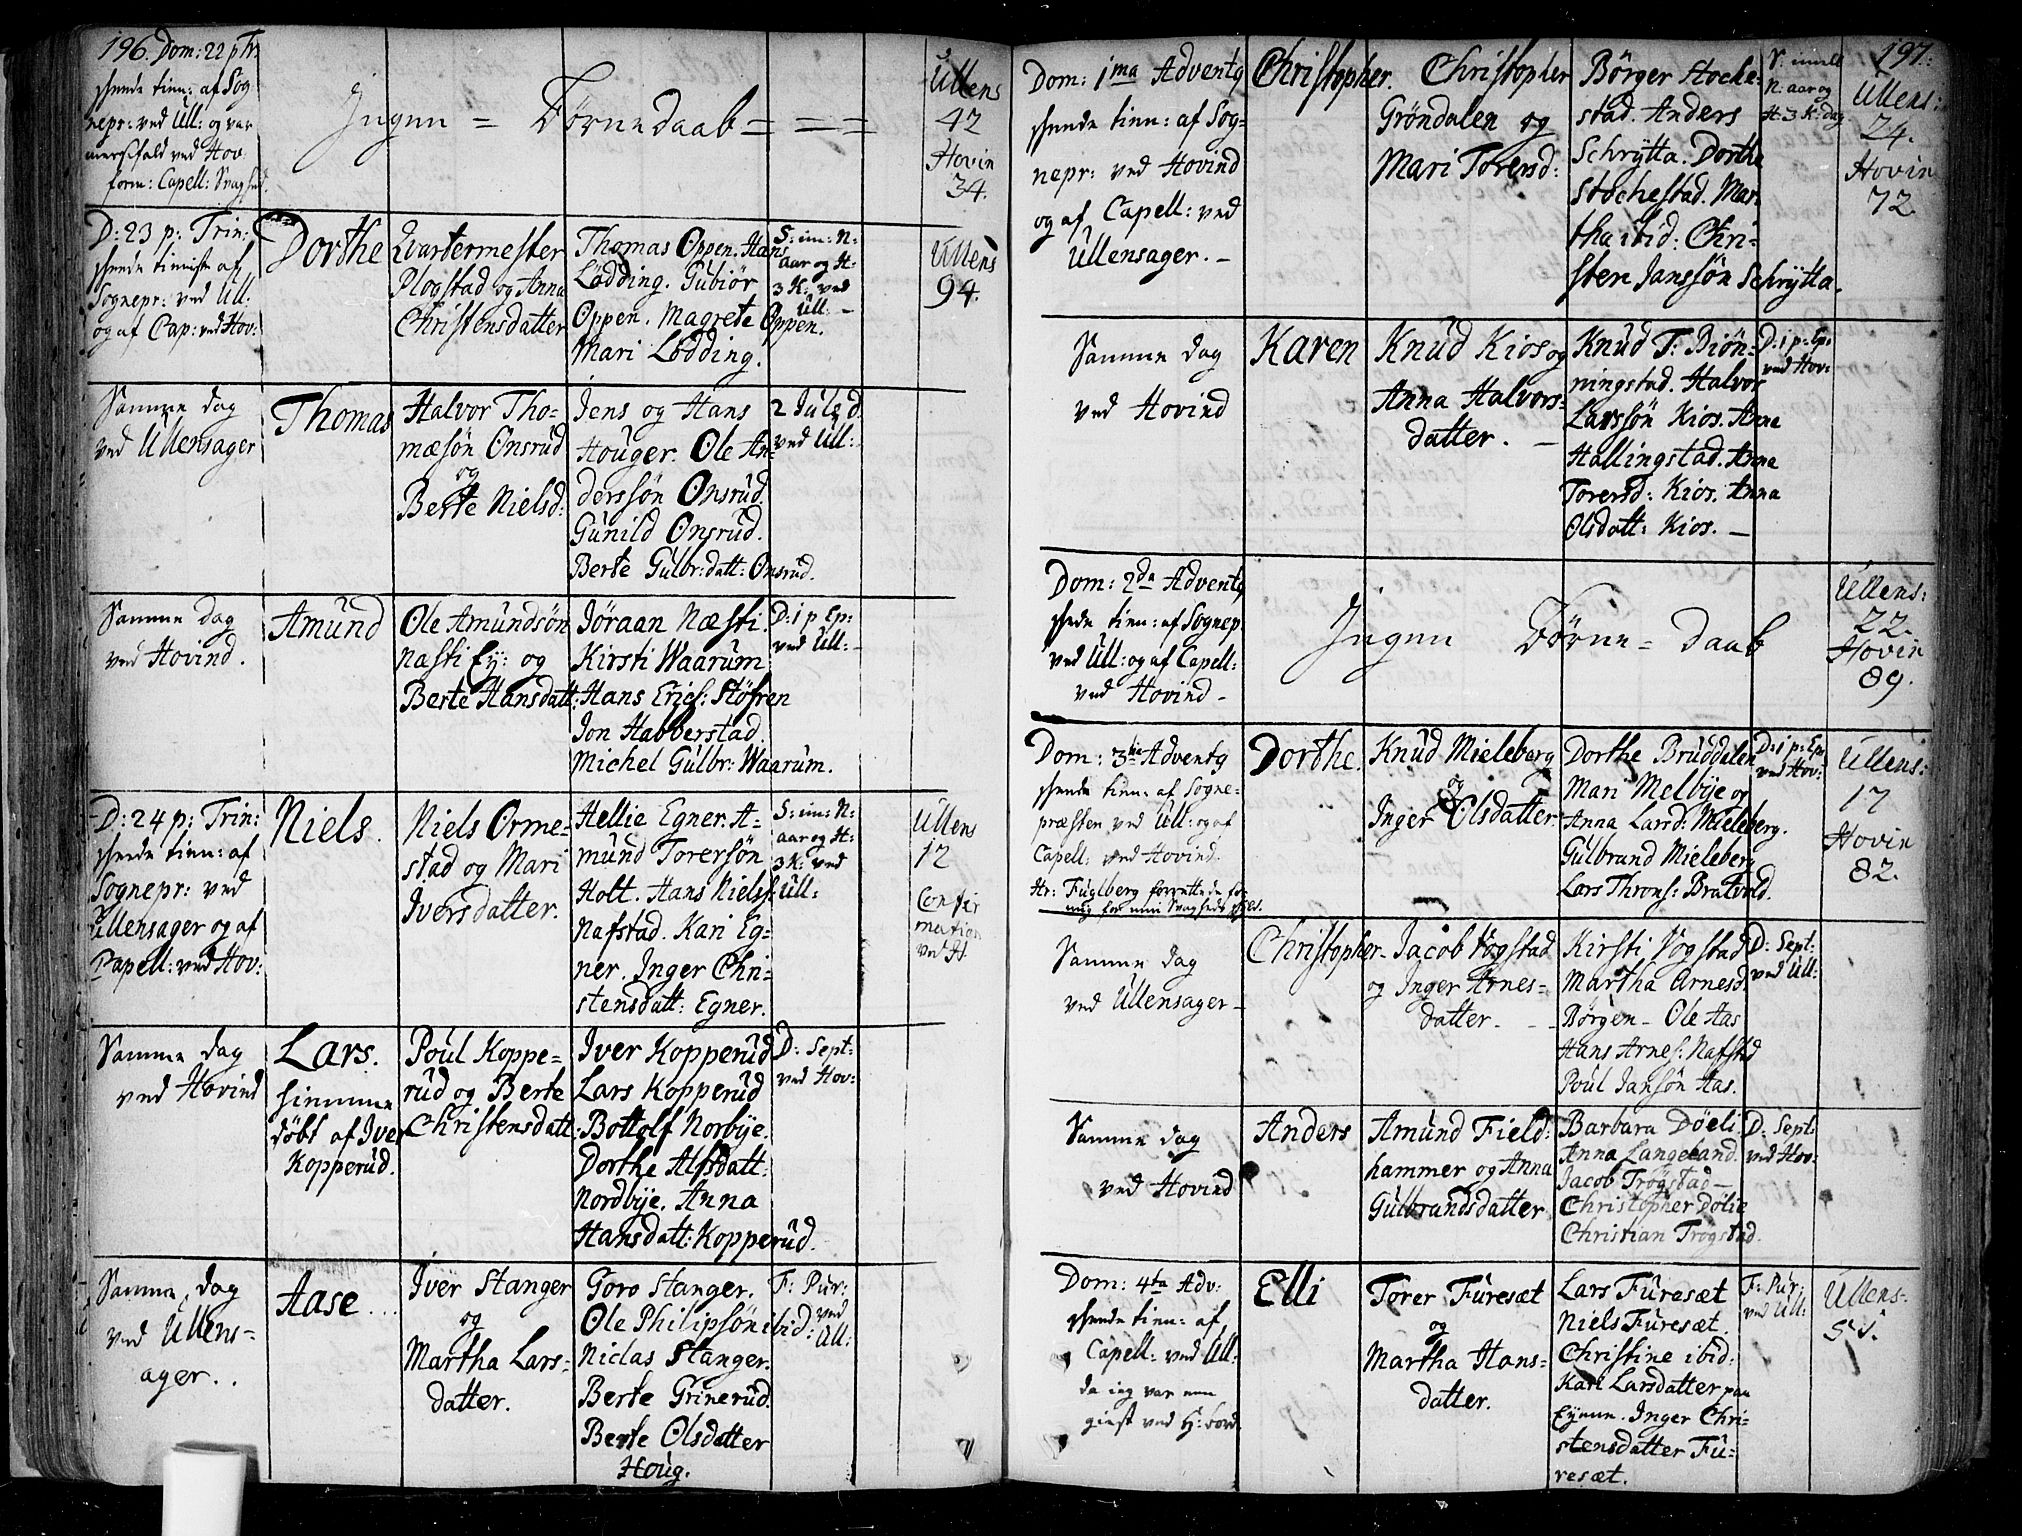 196. Dom: 22 p Tri
skeede tien: af Sog
nepr: ved Ull: og var
ved Hov
form: Capell: Svaghed.
Ingen = Börnedaab = = =
Ullens
42
Hovin
34.
D: 23 p: Trin:
skeede tieniste af
Sognepr: ved Ull:
og af Cap: ved Hov:
Dorthe
Qvartermester
Plogstad og Anna
Christensdatter
Thomas Oppen. Hans
Lödding. Gubiör
Oppen. Magrete Oppen.
Mari Lödding.
S: im: N:
aar og H:
3 K: ved
Ull: –
Ullens
94.
Samme dag
ved Ullensager
Thomas
Halvor Tho=
mæsön Onsrud
og
Berte Nielsd:
Jens og Hans
Houger. Ole An=
derssön Onsrud.
Gunild Onsrud.
Berte Gulbr: datt: Onsrud.
2 Jule d.
ved Ull:
Samme dag
ved Hovind.
Amund
Ole Amundsön
Nasti Ey: og
Berte Hansdatt:
Jöraan Næsti.
Kirsti Waarum
Hans Erics: Stöfren
Jon Habberstad.
Michel Gulbr: Waarum.
D: 1 p Ep:
ved Ull:
D: 24 p: Trin:
skeede tien: af
Sognepr: ved
Ullensager og af
Capell: ved Hov:
Niels.
Niels Orme=
stad og Mari
Iversdatter.
Hellie Egner. A=
mund Torersön
Holt. Hans Niels:
Nafstad. Kari Eg=
ner. Inger Chri=
stensdatt: Egner.
S: im: N:
aar og H:
3 K: ved
Ull:
Ullens
12
Confir
mation
ved H.
Samme dag
ved Hovind
Lars.
hiemme
döbt af Iver
Kopperud.
Poul Koppe=
rud og Berte
Christensdatt:
Iver Kopperud
Lars Kopperud
Bottolf Norbÿe.
Dorthe Alfsdatt:
Nordbÿe. Anna
Hansdatt: Kopperud.
D: Sept:
ved Hov:
Samme dag
ved Ullens=
ager..
Aase...
Iver Stanger
og
Martha Lars=
datter.
Goro Stanger.
Ole Philipsön ibid:
Niclas Stanger.
Berte Grinerud.
Berte Olsdatter
Houg.
F: Pur:
ved
Ull:
197.
Dom: 1ma Advents
skeede tien: af Sog=
nepr: ved Hovind
og af Capell: ved
Ullensager. –
Christopher.
Christopher
Gröndalen og
Mari Torersd:
Börger Stoche=
stad. Anders
Schrÿtta. Dorthe
Stochestad. Mar
tha ibid: Chri=
sten Janssön Schrÿtta.
S: imell
N: aar og
H. 3 K: dag
Ullens:
24.
Hovin
72.
Samme dag
ved Hovind
Karen
Knud Kios og
Anna Halvors=
datter. –
Knud T: Biön=
ningstad. Halvor
Larssön Kios. Anna
Hallingstad. Anna
Torersd: Kios. Anna
Olsdatt: Kios. –
D: 1 p: Ep:
ved Hov:
Dom: 2da Advents
skede tien: af Sognep
ved Ull: og af Capell:
ved Hovind –
Ingen Börne = daab
Ullens:
22.
Hovin
89.
Dom: 3tia Advents
skeede tien: af Sogne=
præsten ved Ull: og af
Capell: ved Hovind.
Hr: Fuglberg forrettede for
mig for min Svagheds skyld.
Dorthe.
Knud Mieleberg
og
Inger Olsdatter.
Dorthe Bruddalen
Mari Melbÿe og
Anna Larsd: Mieleberg.
Gulbrand Mieleberg
Lars Throns: Bratvold.
D: 1 p: Ep:
ved Hov:
Ullens:
17
Hovin
82.
Samme dag
ved Ullensager –
Christopher –
Jacob Vogstad
og Inger Arnes=
datter. –
Kirsti Vogstad
Martha Arnesd.
Börgen – Ole Aas
Hans Arnes: Nafstad
Poul Jansön Aas.
D: Sept:
ved Ull:
Samme dag
ved Hovind
Anders
Amund Field:
hammer og Anna
Gulbrandsdatter
Barbara Döeli.
Anna Langeland.
Jacob Trögstad –
Christopher Dölie
Christian Trögstad.
D: Sept:
ved Hov:
Dom: 4ta Adv:
skeede tien: af
Capell: ved Ull:
da ieg var een
giest ved H: bord.
Elli
Torer Furesæt
og
Martha Hans=
datter.
Lars Furesæt
Niels Furesæt.
Christine ibid:
Kari Larsdatter paa
Eyene. Inger Chri=
stensdatter Fu=
resæt.
F: Pur:
ved Ull:
Ullens:
51.